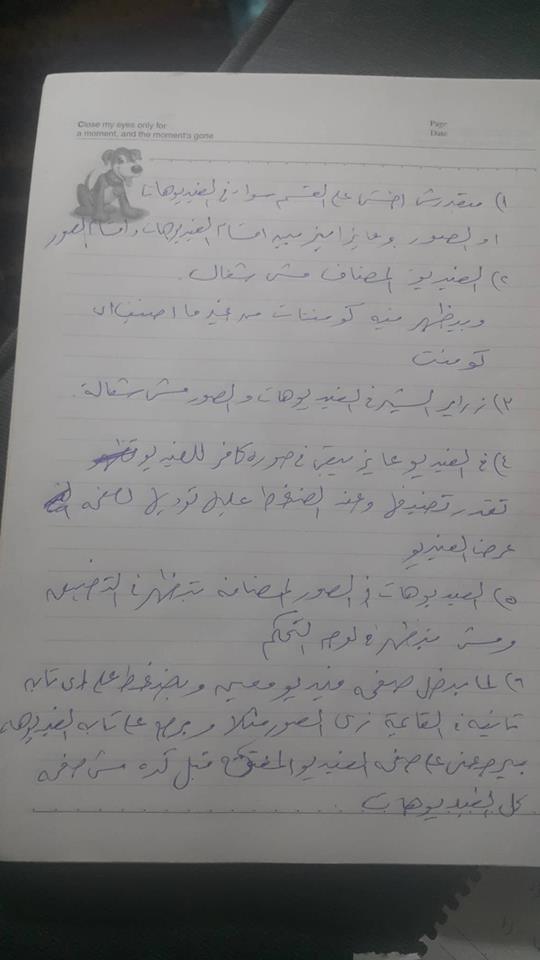 Close my eyes only for
a moment, and the moment's gone
Page
Date
١) مبقدرش اخش على القسم سواء في الفيديوهات
او الصور وعايز اميز بين اقسام الفيديوهات واقسام الصور
٢) الفيديو المضاف مش شغال.
وبيظهر فيه كومنتات من غير ما اضيف اى
كومنت
٣) زراير الشير في الفيديوهات والصور مش شغالة.
٤) في الفيديو عايز يبقى في صورة كافر للفيديو
تقدر تضيفها وعند الضغط عليها توديك لصفحة
عرض الفيديو
٥) الفيديوهات في الصور المضافة بتظهر في التطبيق
ومش بتظهر في لوحه التحكم
٦) لما بدخل صفحه فيديو معين وبضغط على اى تابه
تانيه في القايمة زى الصور مثلا وبرجع على تابه الفيديوهات
بيرجعنى على صفحه الفيديو المفتوح قبل كده مش صفحه
كل الفيديوهات